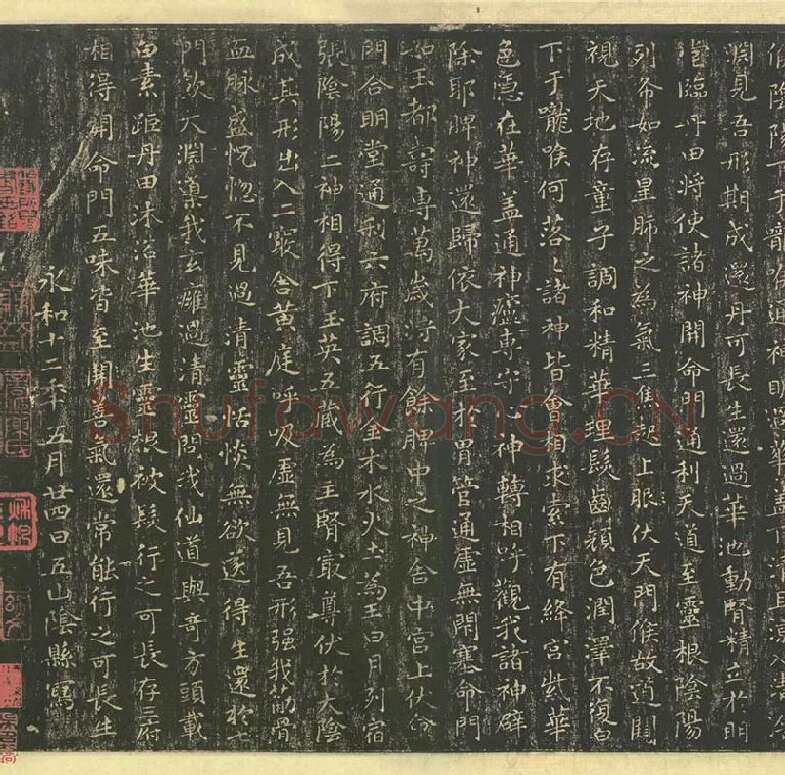 陰陽下于嚨喉通神明過華蓋下清且涼入清泠
淵見吾形期成還丹可長生還過華池動腎精立於明
堂臨丹田將使諸神開命門通利天道至靈根陰陽
列布如流星肺之為氣三焦起上服伏天門候故道闚
視天地存童子調和精華理髮齒顏色潤澤不復白
下于嚨喉何落〻諸神皆會相求索下有絳宮紫華
色隱在華蓋通神廬專守心神轉相呼觀我諸神辟
除耶脾神還歸依大家至於胃管通虛無閉塞命門
如玉都壽專萬歲將有餘脾中之神舍中宮上伏命
門合明堂通利六府調五行金木水火土為王日月列宿
張陰陽二神相得下玉英五藏為主腎最尊伏於大陰
成其形出入二竅舍黃庭呼吸虛無見吾形强我筋骨
血脉盛怳惚不見過清靈恬惔無欲遂得生還於七
門飲大淵導我玄癰過清靈問我仙道與奇方頭載
白素距丹田沐浴華池生靈根被髮行之可長存三府
相得開命門五味皆至開善氣還常能行之可長生
永和十二年五月廿四日五山陰縣寫
Shufawang.CN